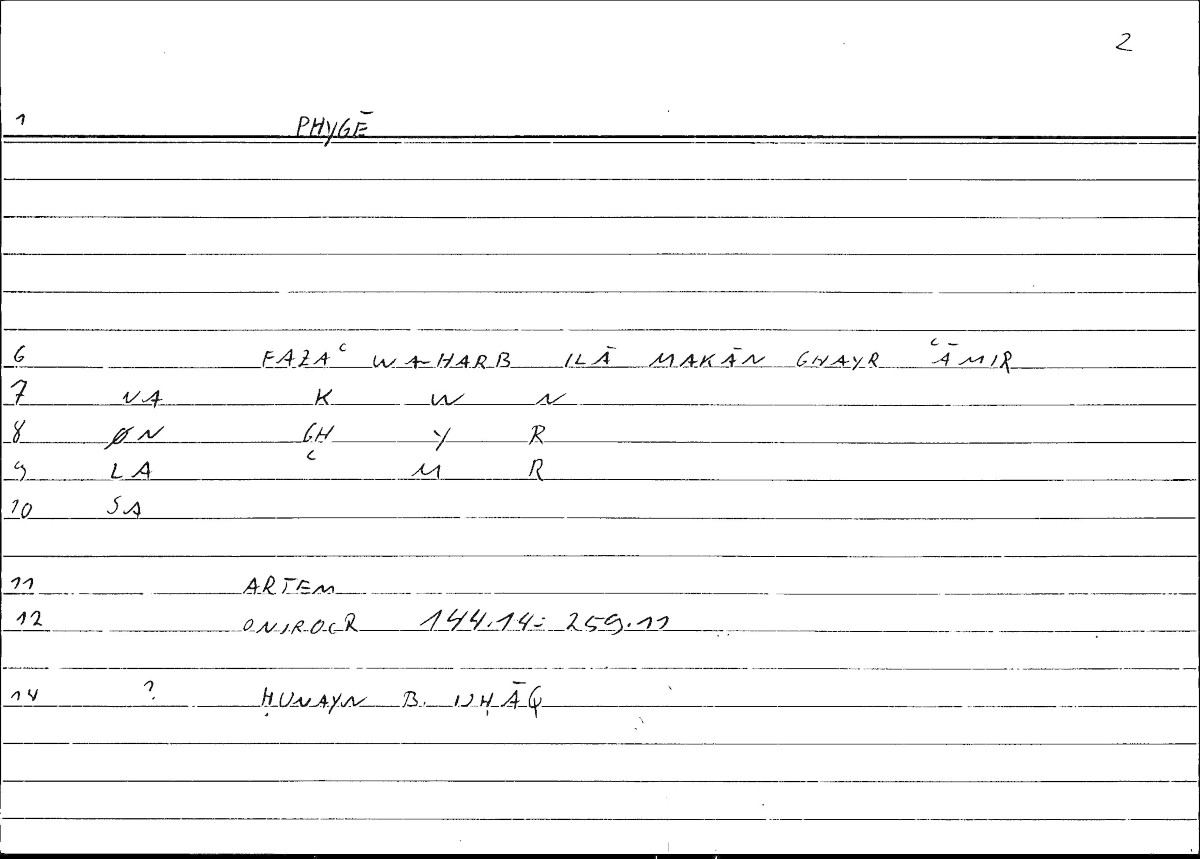 2
1 PHYGĒ
6 FAZAʿ WA-HARB ILĀ MAKĀN GHAYR ʿĀMIR
7 NA K W N
8 ØN GH Y R
9 LA ʿ M R
10 SA
11 ARTEM
12 ONIROCR 144.14 = 259.11
14 ? ḤUNAYN B. ISḤĀQ